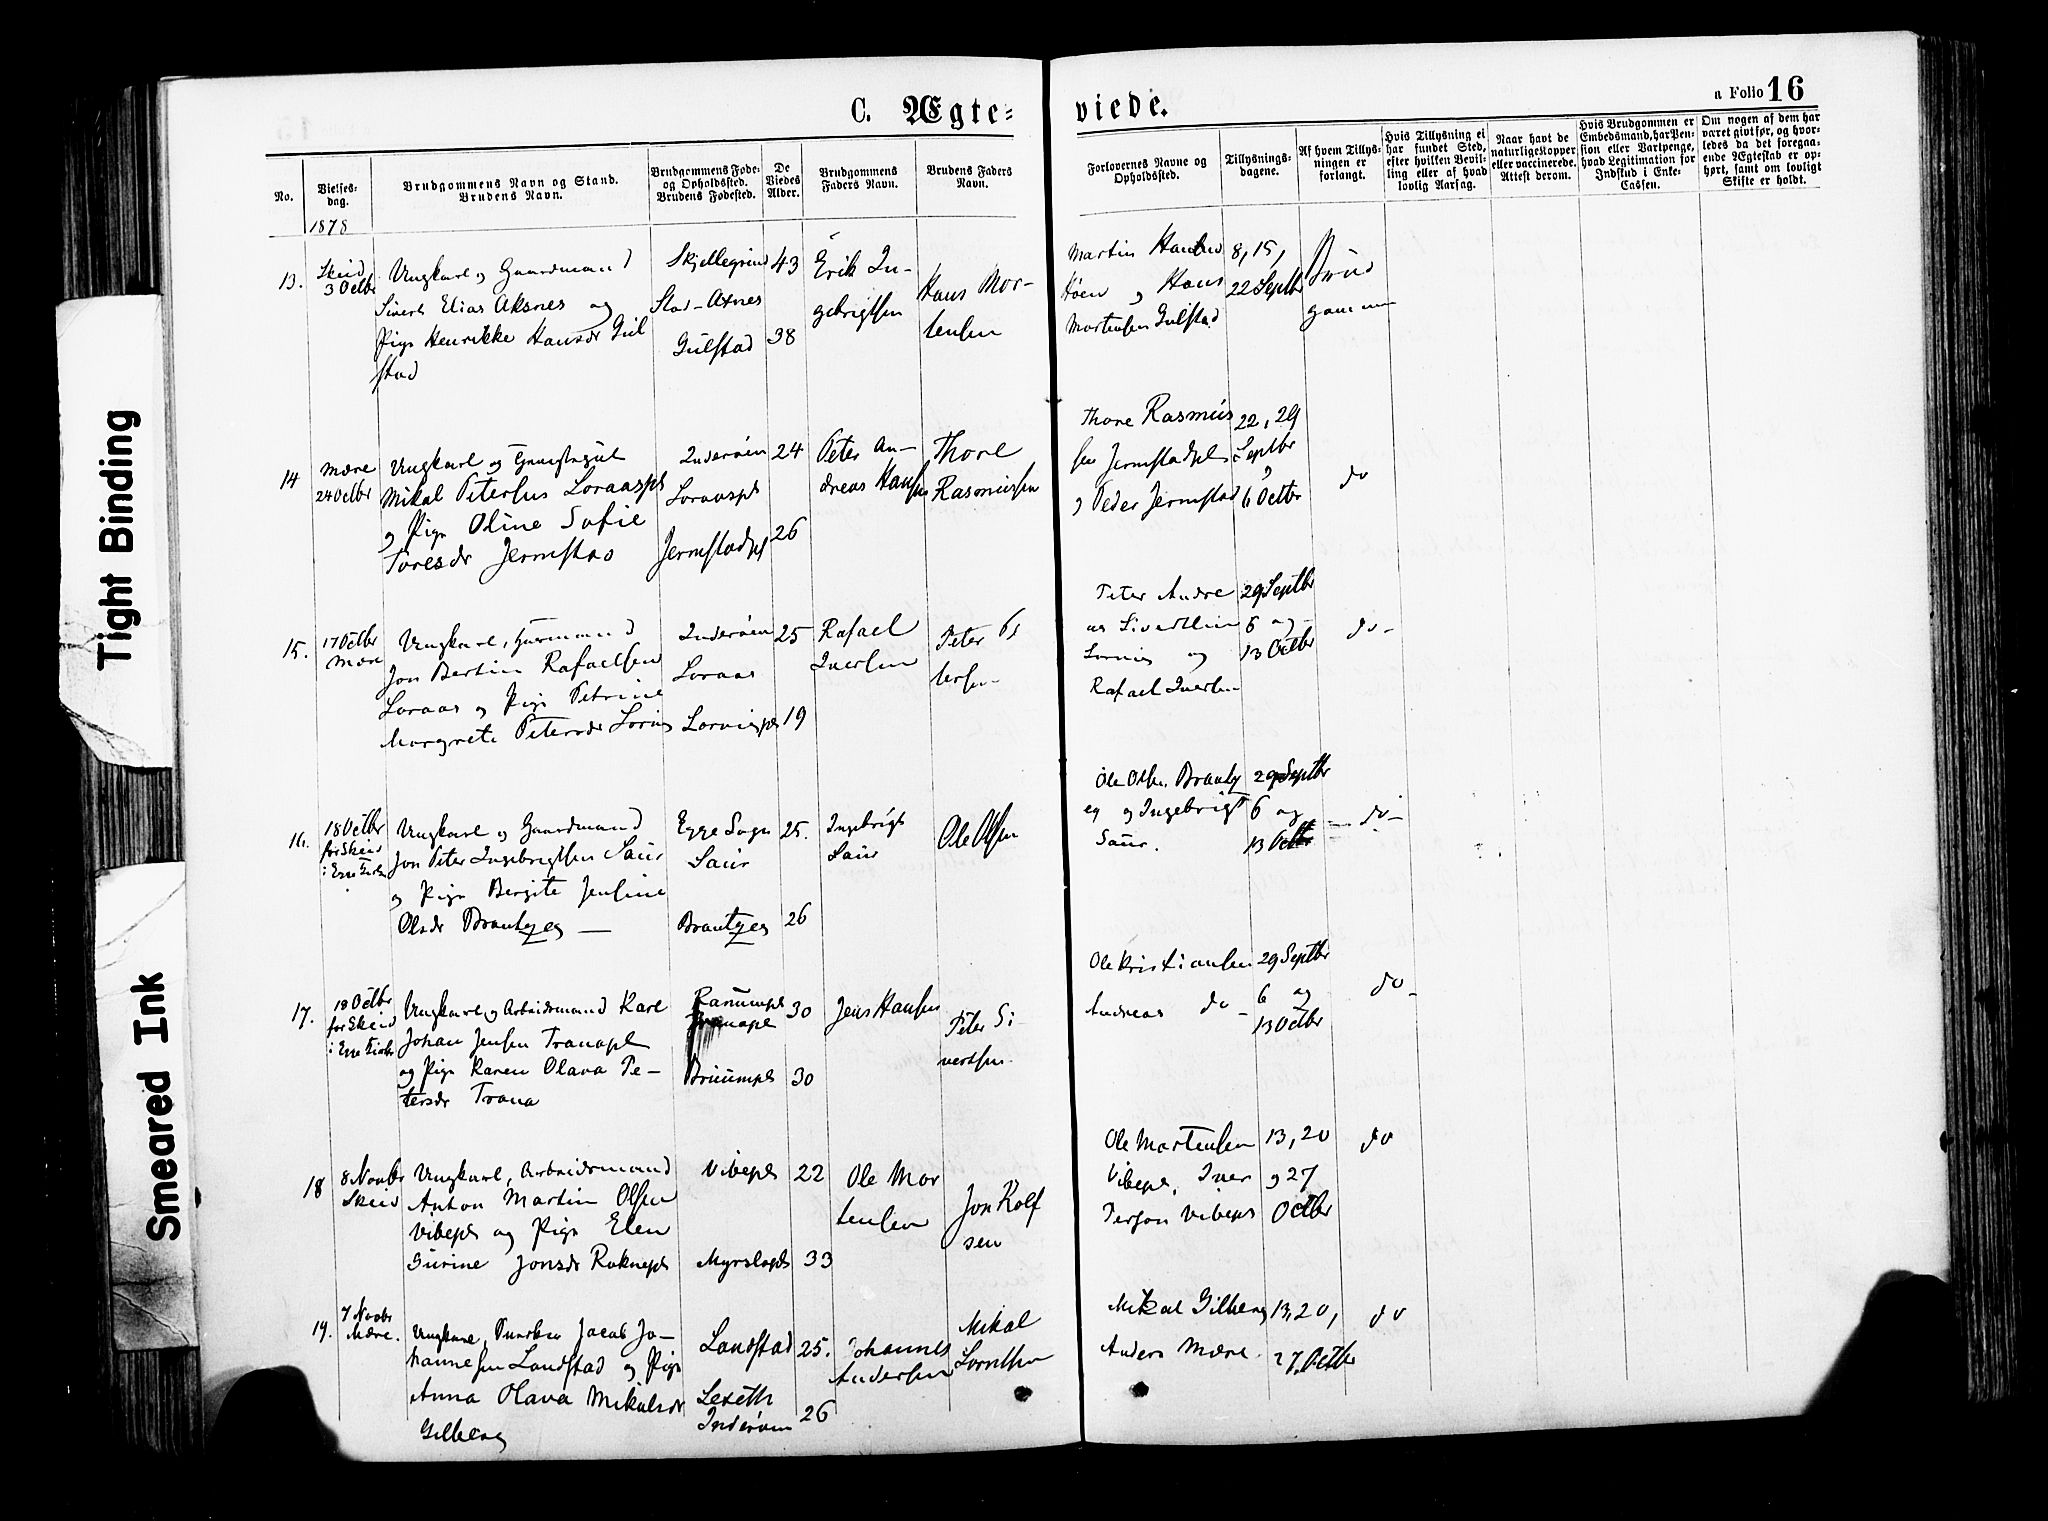 Tight Binding
Smeared Ink
C. Ægte=
viede.
a Folio 16
No.
Vielses-
dag.
Brudgommens Navn og Stand.
Brudens Navn.
Brudgommens Føde-
og Opholdssted.
Brudens Fødested.
De
Viedes
Alder.
Brudgommens
Faders Navn.
Brudens Faders
Navn.
Forlovernes Navne og
Opholdssted.
Tillysnings-
dagene.
Af hvem Tillys-
ningen er
forlangt.
Hvis Tillysning ei
har fundet Sted,
efter hvilken Bevil-
ling eller af hvad
lovlig Aarsag.
Naar havt de
naturlige Kopper
eller vaccinerede.
Attest derom.
Hvis Brudgommen er
Embedsmand, har Pen-
sion eller Vartpenge,
hvad Legitimation for
Indskud i Enke-
Cassen.
Om nogen af dem har
været givt før, og hvor-
ledes da det foregaa-
ende Ægteskab er op-
hørt, samt om lovligt
Skifte er holdt.
1878
13.
Skeid
3 Octbr
Ungkarl og Gaardmand
Sivert Elias Aksnes og
Pige Henrikke Hansdr Gul
stad
Skjellegrind
Stod - Axnes
Gulstad
43
38
Erik In-
gebrigtsen
Hans Mor-
tensen
Martin
Høen og Hans
Mortensen Gulstad
8, 15,
22 Septbr
Brud
gommen
14
Mære
24 Octbr
Ungkarl og
Mikal Petersen Loraaspl
og Pige Oline Sofie
Toresdr Jermstad
Inderøen
Loraaspl
Jermstadpl
24
26
Peter An-
dreas Hansen
Thore
Rasmussen
Thore Rasmus
sen Jermstadpl
og Peder Jermstad
22, 29
Septbr
6 Octbr
do
15.
17 Octbr
Mære
Ungkarl, Gaardmand
Jon Bertin Rafaelsen
Loraas og Pige Petrine
Margrete Petersdr Lorvig
Inderøen
Loraas
Lorvigpl
25
19
Rafael
Iversen
Peter Pe
tersen
Peter Andre
as
Lorvig og
Rafael Iversen
29 Septbr
6 og
13 Octbr
do -
16.
18 Octbr
for Skeid
i Egge Kirke
Ungkarl og Gaardmand
Jon Peter Ingebrigtsen Saur
og Pige Bergite Jensine
Olsdr Brantzeg
Egge Sogn
Saur
Brantzeg
25.
26
Ingebrigt
Saur
Ole Olsen
Ole Olsen Brantz
eg og Ingebrigt
Saur.
29 Septbr
6 og
13 Octbr
- do -
17.
18 Octbr
for Skeid
i Egge Kirke
Ungkarl og Arbeidsmand Karl
Johan Jensen Tranapl
og Pige Karen Olava Pe-
tersdr Trana
Ranumpl
Tranapl
30
30
Jens Hansen
Peter Si
vertsen
Ole Kristiansen
Andreas do -
29 Septbr
6 og
13 Octbr
do -
18
8 Novbr
Skeid
Ungkarl, Arbeidsmand
Anton Martin Olsen
Vibepl og Pige Elen
Gurine Jonsdr Roknepl
Vibepl
Myrslopl
22
33
Ole Mor
tensen
Jon Rolf
sen
Ole Mortensen
Vibepl, Iver
Vibepl
13, 20
og 27
Octbr
do
19.
7 Novbr
Mære.
Ungkarl, Jacob Jo-
hannesen Landstad og Pige
Anna Olava Mikalsdr
Gilberg
Landstad
Lexeth
Inderøen
25.
26
Johannes
Andersen
Mikal
Mikal Gilberg
Anders Mære
13, 20,
27. Octbr
do